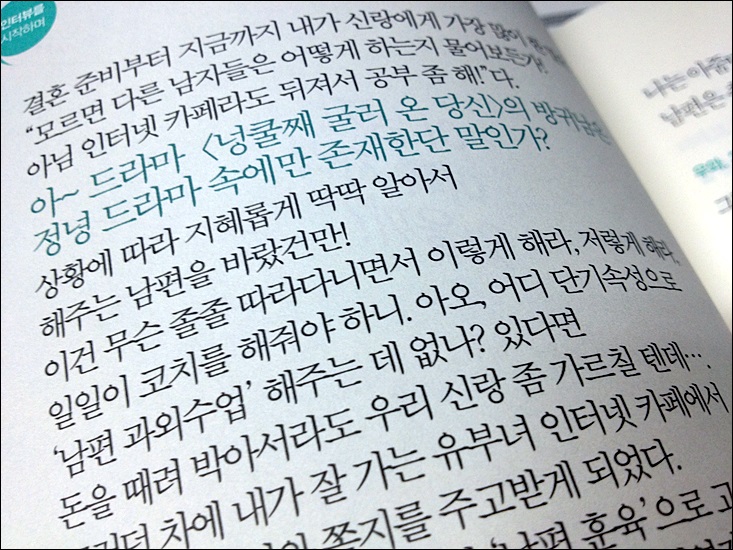 인터뷰를
시작하며
결혼 준비부터 지금까지 내가 신랑에게 가장 많이
"모르면 다른 남자들은 어떻게 하는지 물어보든가!
아님 인터넷 카페라도 뒤져서 공부 좀 해!"다.
아~ 드라마 〈넝쿨째 굴러 온 당신〉의 방귀남은
정녕 드라마 속에만 존재한단 말인가?
상황에 따라 지혜롭게 딱딱 알아서
해주는 남편을 바랐건만!
이건 무슨 졸졸 따라다니면서 이렇게 해라, 저렇게 해라,
일일이 코치를 해줘야 하니. 아오, 어디 단기속성으로
'남편 과외수업' 해주는 데 없나? 있다면
돈을 때려 박아서라도 우리 신랑 좀 가르칠 텐데….
차에 내가 잘 가는 유부녀 인터넷 카페에서
쪽지를 주고받게 되었다.
'남편 훈육'으로
나는 아줌
남편은